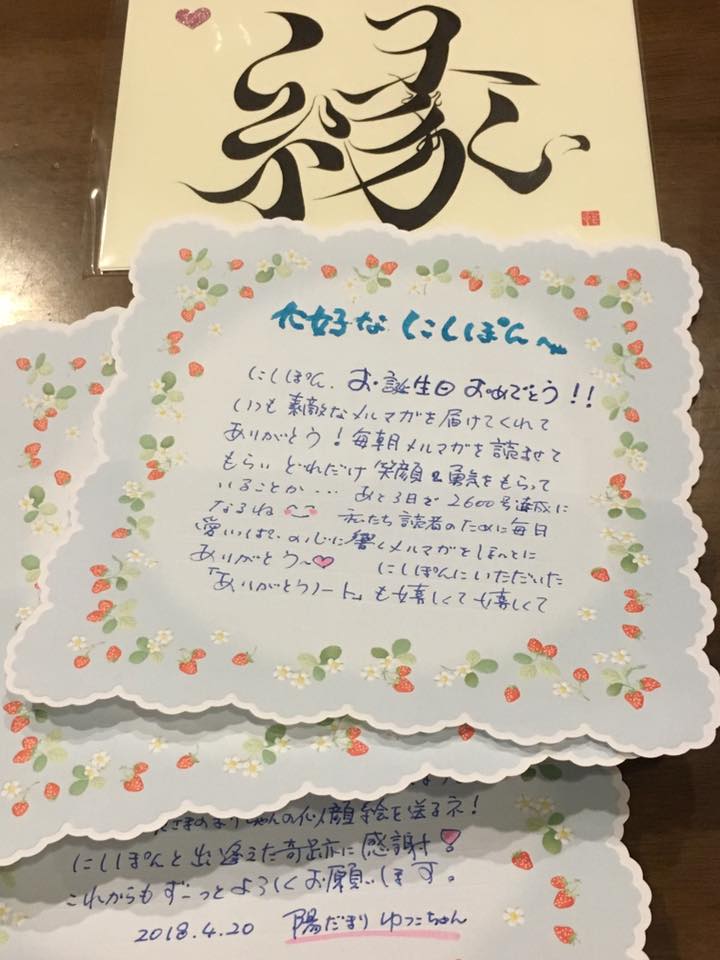 縁
大好きな にしぽん〜
にしぽん、お誕生日 おめでとう!!
いつも 素敵なメルマガを届けてくれて
ありがとう!毎朝メルマガを読ませて
もらい どれだけ 笑顔&勇気をもらって
いることか... あと3日で 2600号達成に
なるね 私たち 読者のために毎日
愛いっぱいの心に響くメルマガをほんとに
ありがとう〜 にしぽんにいただいた
「ありがとうノート」も嬉しくて嬉しくて
ちゃんの似顔絵を送るネ!
にしぽんと出逢えた奇跡に感謝!
これからもずーっとよろしくお願いします。
2018.4.20 陽だまり ゆっこちゃん